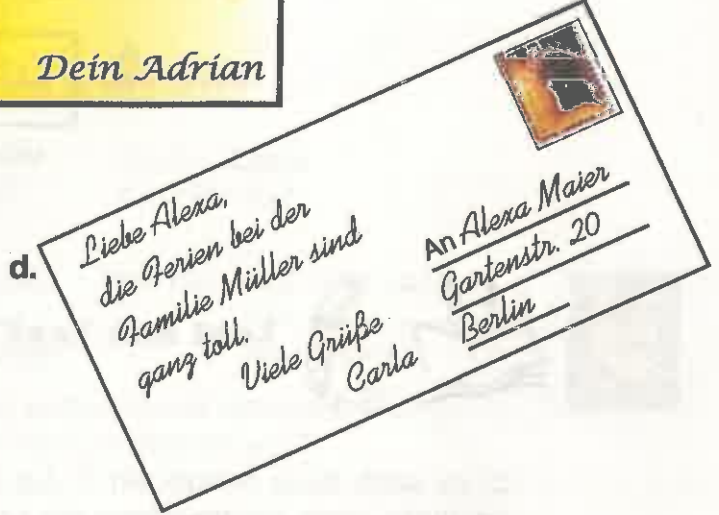 Dein Adrian
d.
Liebe Alexa,
die Ferien bei der
Familie Müller sind
ganz toll.
Viele Grüße
Carla
An Alexa Maier
Gartenstr. 20
Berlin